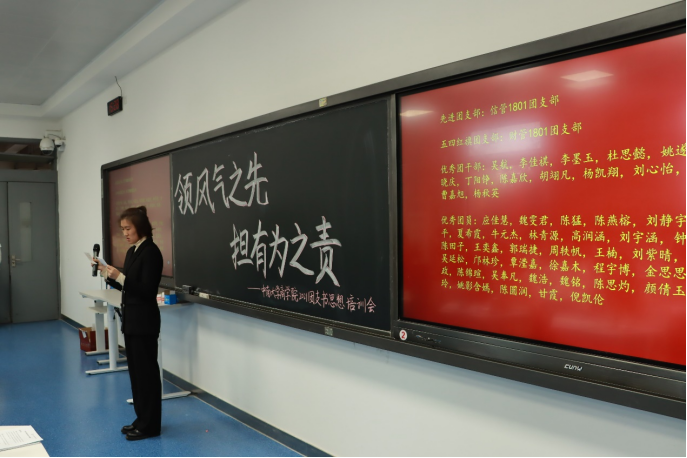 领风气之先
担有为之责
先进团支部：信管1801团支部
五四红旗团支部：财管1801团支部
优秀团干部：吴航，李佳祺，李墨玉，杜思懿，姚遂
晓庆，丁阳铮，陈嘉欣，胡翊凡，杨凯翔，刘心怡，
曹嘉旭，杨秋英
优秀团员：应佳慧，魏雯君，陈猛，陈燕榕，刘静宇
平，夏希霞，牛元杰，林青源，高润涵，刘宇涵，钟
陈田子，王奕鑫，郭瑞捷，周轶帆，王楠，刘紫晴，
吴延松，邝林珍，覃滢嘉，徐嘉木，程宇博，金思思
政，陈锦缤，吴奉凡，魏浩，魏铭，陈思灼，颜倩玉
玲，姚影含嫣，陈圆润，甘霞，倪凯伦
2